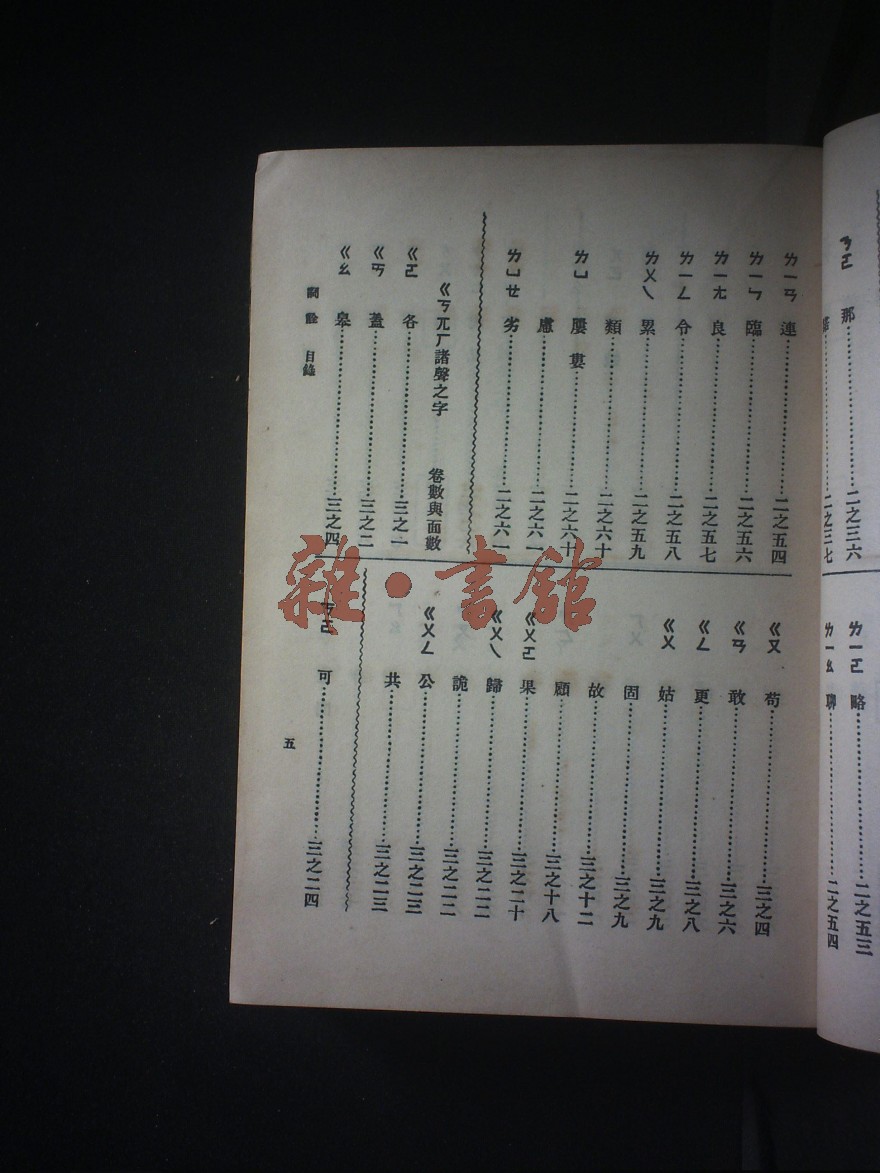 ㄋㄛ 那……二之三六
……二之三七
ㄌㄧㄛ 略……二之五三
ㄌㄧㄠ 聊……二之五四
ㄌㄧㄢ 連……二之五四
ㄌㄧㄣ 臨……二之五六
ㄌㄧㄤ 良……二之五七
ㄌㄧㄥ 令……二之五八
ㄌㄨㄟ 累……二之五九
類……二之六十
ㄌㄩ 屢 婁……二之六十
慮……二之六一
ㄌㄩㄝ 劣……二之六一
ㄍㄎㄫㄏ諸聲之字 卷數與面數
ㄍㄛ 各……三之一
ㄍㄞ 蓋……三之二
ㄍㄠ 皋……三之四
ㄍㄡ 苟……三之四
ㄍㄢ 敢……三之六
ㄍㄥ 更……三之八
ㄍㄨ 姑……三之九
固……三之九
故……三之十二
顧……三之十八
ㄍㄨㄛ 果……三之二十
ㄍㄨㄟ 歸……三之二二
詭……三之二二
ㄍㄨㄥ 公……三之二三
共……三之二三
ㄎㄛ 可……三之二四
詞詮 目錄
五
雜·書館